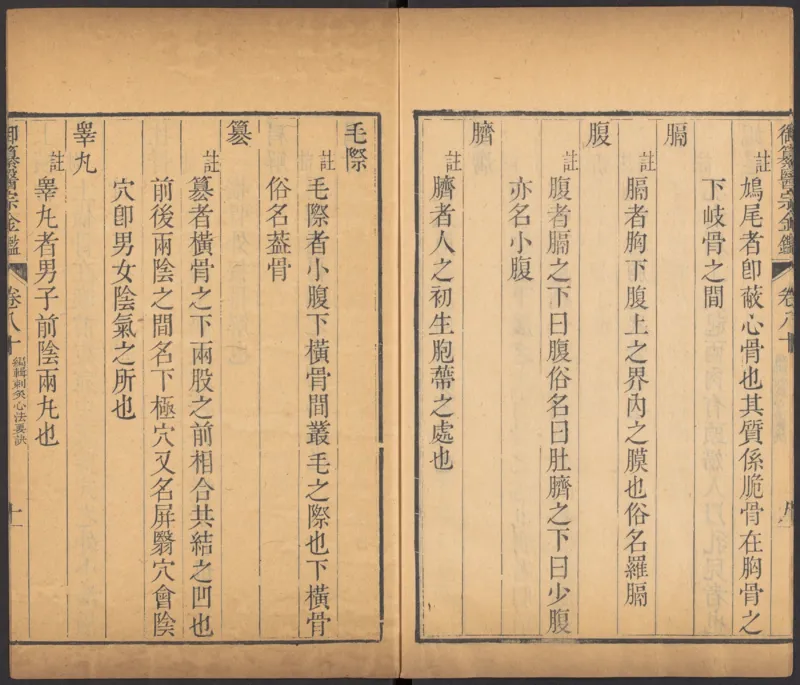 御纂醫宗金鑑 卷八十
註 鳩尾者卽蔽心骨也其質係脆骨在胸骨之
下岐骨之間
膈
註 膈者胸下腹上之界內之膜也俗名羅膈
腹
註 腹者膈之下曰腹俗名曰肚臍之下曰少腹
亦名小腹
臍
註 臍者人之初生胞蔕之處也
毛際
註 毛際者小腹下橫骨間叢毛之際也下橫骨
俗名蓋骨
篡
註 篡者橫骨之下兩股之前相合共結之凹也
前後兩陰之間名下極穴又名屏翳穴會陰
穴卽男女陰氣之所也
睾丸
註 睾丸者男子前陰兩丸也
御纂醫宗金鑑 卷八十 編輯刺灸心法要訣 十一